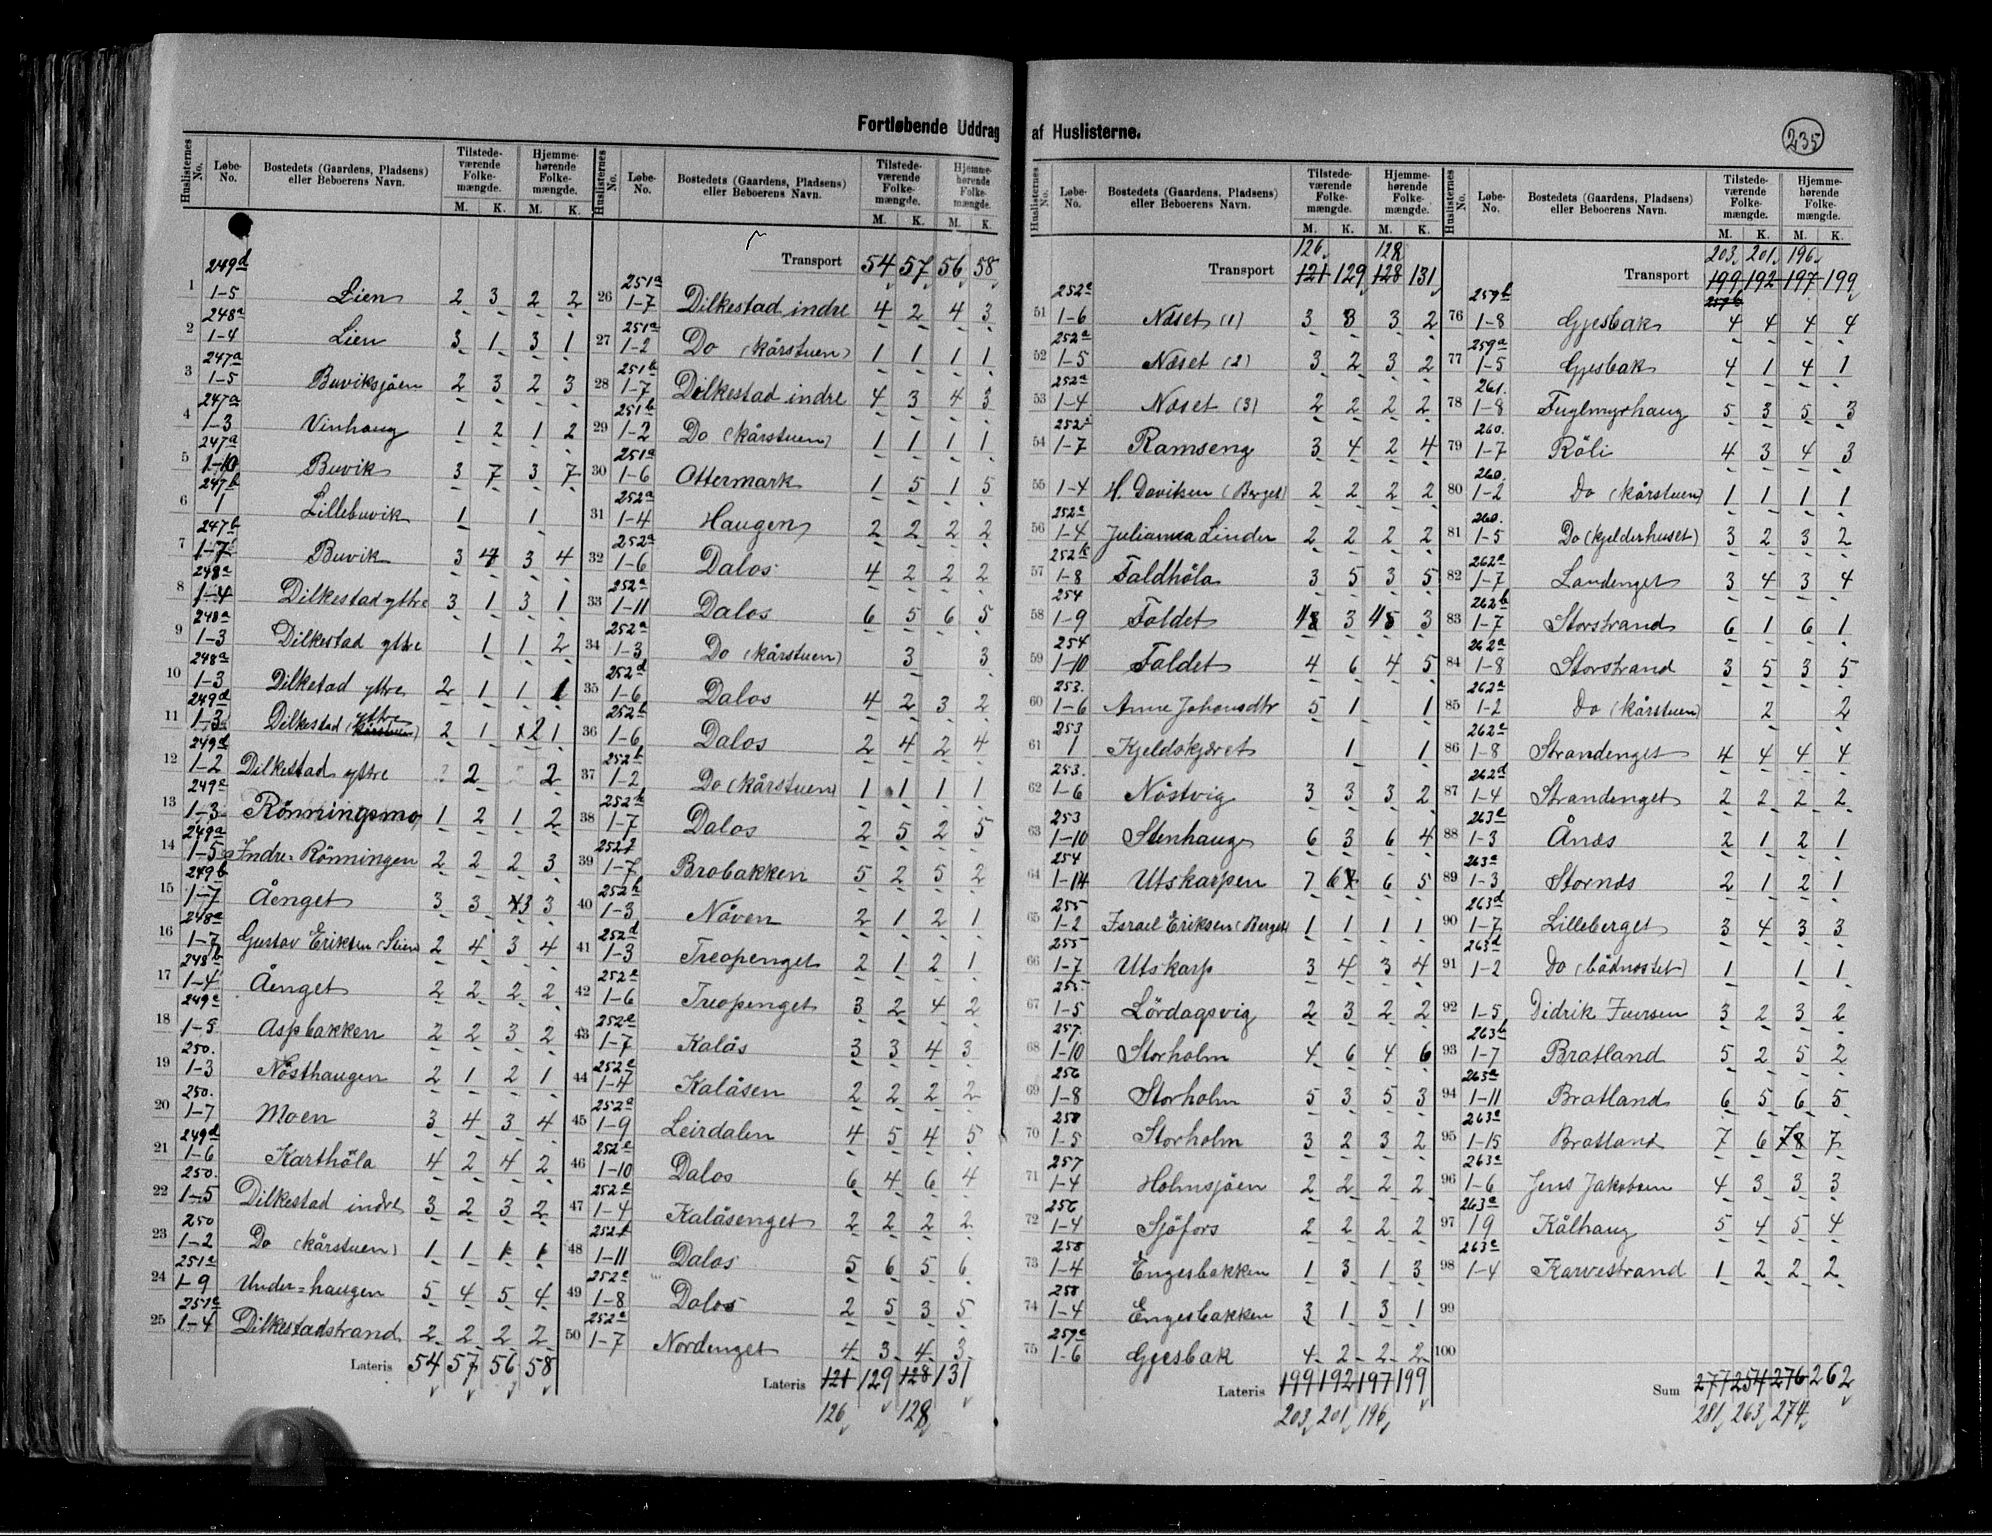 Fortløbende Uddrag af Huslisterne.
235
Huslisternes No. Løbe-No. Bostedets (Gaardens, Pladsens) eller Beboerens Navn. Tilstede-værende Folke-mængde. Hjemme-hørende Folke-mængde.
M. K. M. K.
1 249d 1-5 Lien 2 3 2 2
2 248a 1-4 Lien 3 1 3 1
3 247a 1-5 Buviksjøen 2 3 2 3
4 247a 1-3 Vinhaug 1 2 1 2
5 247a 1-10 Buvik 3 7 3 7
6 247b 1 Lillebuvik 1 1
7 247b 1-7 Buvik 3 4 3 4
8 248a 1-4 Dilkestad yttre 3 1 3 1
9 248a 1-3 Dilkestad yttre 1 1 2
10 248a 1-3 Dilkestad yttre 2 1 1 1
11 249d 1-3 Dilkestad yttre (kårstuen) 2 1 2 1
12 249d 1-2 Dilkestad yttre 2 2
13 249a 1-3 Rönningsmo 1 2 1 2
14 249a 1-5 Indre-Rönningen 2 2 2 3
15 249b 1-7 Åenget 3 3 3 3
16 248a 1-7 Gustav Eriksen 2 4 3 4
17 248b 1-4 Åenget 2 2 2 2
18 249c 1-5 Aspbakken 2 2 3 2
19 250. 1-3 Nösthaugen 2 1 2 1
20 250. 1-7 Moen 3 4 3 4
21 249d 1-6 Karthöla 4 2 4 2
22 250. 1-5 Dilkestad indre 3 2 3 2
23 250 1-2 Do (kårstuen) 1 1 1 1
24 251a 1-9 Under-haugen 5 4 5 4
25 251c 1-4 Dilkestadstrand 2 2 2 2
Lateris 54 57 56 58
Huslisternes No. Løbe-No. Bostedets (Gaardens, Pladsens) eller Beboerens Navn. Tilstede-værende Folke-mængde. Hjemme-hørende Folke-mængde.
M. K. M. K.
Transport 54 57 56 58
26 251a 1-7 Dilkestad indre 4 2 4 3
27 251a 1-2 Do (kårstuen) 1 1 1 1
28 251b 1-7 Dilkestad indre 4 3 4 3
29 251b 1-2 Do (kårstuen) 1 1 1 1
30 251a 1-6 Ottermark 1 5 1 5
31 252a 1-4 Haugen 2 2 2 2
32 252a 1-6 Dalos 4 2 2 2
33 252a 1-11 Dalos 6 5 6 5
34 252a 1-3 Do (kårstuen) 3 3
35 252d 1-6 Dalos 4 2 3 2
36 252b 1-6 Dalos 2 4 2 4
37 252b 1-2 Do (kårstuen) 1 1 1 1
38 252b 1-7 Dalos 2 5 2 5
39 252f 1-7 Brobakken 5 2 5 2
40 252b 1-3 Nåven 2 1 2 1
41 252d 1-3 Treopenget 2 1 2 1
42 252a 1-6 Treopenget 3 2 4 2
43 252e 1-7 Kalås 3 3 4 3
44 252e 1-4 Kalåsen 2 2 2 2
45 252a 1-9 Leirdalen 4 5 4 5
46 252e 1-10 Dalos 6 4 6 4
47 252e 1-4 Kalåsenget 2 2 2 2
48 252f 1-11 Dalos 5 6 5 6
49 252e 1-8 Dalos 2 5 3 5
50 252a 1-7 Nordenget 4 3 4 3
Lateris 121 129 128 131
126 128
Huslisternes No. Løbe-No. Bostedets (Gaardens, Pladsens) eller Beboerens Navn. Tilstede-værende Folke-mængde. Hjemme-hørende Folke-mængde.
M. K. M. K.
126 128
Transport 121 129 128 131
51 252a 1-6 Næset (1) 3 3 3 2
52 252a 1-5 Næset (2) 3 2 3 2
53 252a 1-4 Næset (3) 2 2 2 2
54 252c 1-7 Ramseng 3 4 2 4
55 1-4 H. Daviksen (Berget) 2 2 2 2
56 252a 1-4 Julianna Linder 2 2 2 2
57 252b 1-8 Faldhöla 3 5 3 5
58 254 1-9 Faldet 3 3
59 254 1-10 Faldet 4 6 4 5
60 253. 1-6 Anne Johansdtr 5 1 1
61 253 1 Kjeldskjæret 1 1
62 253. 1-6 Nöstvig 3 3 3 2
63 253 1-10 Stenhaug 6 3 6 4
64 254 1-14 Utskarpen 7 6 6 5
65 255 1-2 Israel Eriksen (Berget) 1 1 1 1
66 255 1-7 Utskarp 3 4 3 4
67 255. 1-5 Lördagsvig 2 3 2 2
68 257. 1-10 Storholm 4 6 4 6
69 256 1-8 Storholm 5 3 5 3
70 258 1-5 Storholm 3 2 3 2
71 257 1-4 Holmsjöen 2 2 2 2
72 256 1-4 Sjöfors 2 2 2 2
73 258 1-4 Engesbakken 1 3 1 3
74 258 1-4 Engesbakken 3 1 3 1
75 259a 1-6 Gjesbak 4 2 2 2
Lateris 199 192 197 199
203 201 196
Huslisternes No. Løbe-No. Bostedets (Gaardens, Pladsens) eller Beboerens Navn. Tilstede-værende Folke-mængde. Hjemme-hørende Folke-mængde.
M. K. M. K.
203 201 196
Transport 199 192 197 199
259b
76 259b 1-8 Gjesbak 4 4 4 4
77 259a 1-5 Gjesbak 4 1 4 1
78 261. 1-8 Fuglmyrhaug 5 3 5 3
79 260. 1-7 Röli 4 3 4 3
80 260. 1-2 Do (kårstuen) 1 1 1 1
81 260. 1-5 Do (kjelderhuset) 3 2 3 2
82 262a 1-7 Landenget 3 4 3 4
83 262b 1-7 Storstrand 6 1 6 1
84 262a 1-8 Storstrand 3 5 3 5
85 262a 1-2 Do (kårstuen) 2 2
86 262a 1-8 Strandenget 4 4 4 4
87 262d 1-4 Strandenget 2 2 2 2
88 263c 1-3 Ånæs 2 1 2 1
89 263a 1-3 Stornæs 2 1 2 1
90 263d 1-7 Lilleberget 3 4 3 3
91 263d 1-2 Do (bådnostet) 1 1 1
92 1-5 Didrik Iversen 3 2 3 2
93 263b 1-7 Bratland 5 2 5 2
94 263a 1-11 Bratland 6 5 6 5
95 263a 1-15 Bratland 7 6 8 7
96 263a 1-6 Jens Jakobsen 4 3 3 3
97 263a 19 Kålhaug 5 4 5 4
98 263e 1-4 Karvestrand 1 2 2 2
99
100
Sum 277 254 276 262
281 263 274